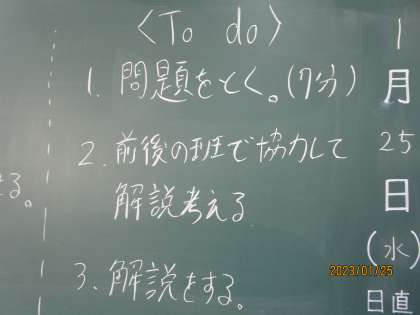 〈To do〉
1. 問題をとく。(7分)
2. 前後の班で協力して
解説考える
3. 解説をする。
る。
1
月
25
日
(水)
日直
2023/01/25